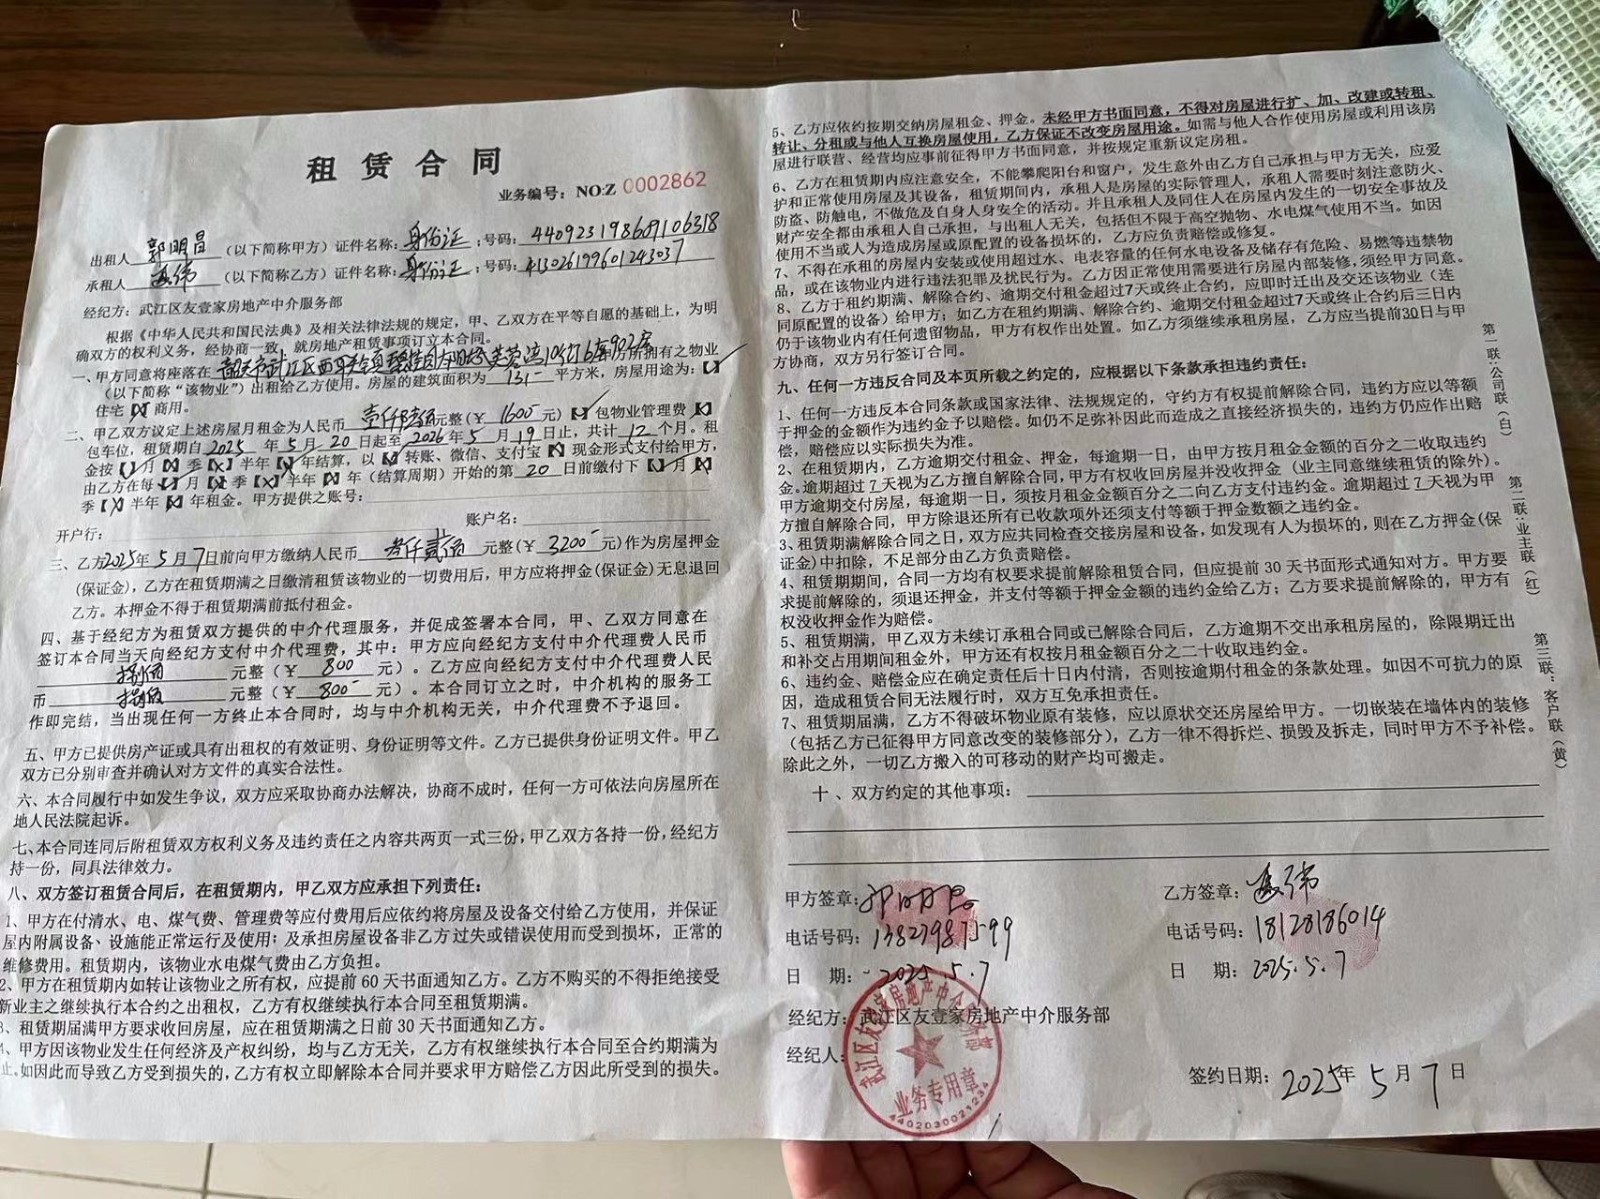 租赁合同
业务编号：NO:Z 0002862
出租人 郭明昌 （以下简称甲方）证件名称：身份证；号码：440923198609106318
承租人 （以下简称乙方）证件名称：身份证；号码：413026199601243037
经纪方：武江区友壹家房地产中介服务部
根据《中华人民共和国民法典》及相关法律法规的规定，甲、乙双方在平等自愿的基础上，为明
确双方的权利义务，经协商一致，就房地产租赁事项订立本合同。
一、甲方同意将座落在 韶关市武江区西联镇 10栋6座902房 房所拥有之物业
（以下简称“该物业”）出租给乙方使用。房屋的建筑面积为 131 平方米，房屋用途为：【】
住宅【】商用。
二、甲乙双方议定上述房屋月租金为人民币 壹仟陆佰 元整（￥ 1600 元）【】包物业管理费【】
包车位，租赁期自 2025 年 5 月 20 日起至 2026 年 5 月 19 日止，共计 12 个月。租
金按【】月【】季【】半年【】年结算，以【】转账、微信、支付宝【】现金形式支付给甲方，
由乙方在每【】月【】季【】半年【】年（结算周期）开始的第 20 日前缴付下【】月【】
季【】半年【】年租金。甲方提供之账号：
开户行： 账户名：
三、乙方2025年 5 月 7 日前向甲方缴纳人民币 叁仟贰佰 元整（￥ 3200 元）作为房屋押金
（保证金），乙方在租赁期满之日缴清租赁该物业的一切费用后，甲方应将押金（保证金）无息退回
乙方。本押金不得于租赁期满前抵付租金。
四、基于经纪方为租赁双方提供的中介代理服务，并促成签署本合同，甲、乙双方同意在
签订本合同当天向经纪方支付中介代理费，其中：甲方应向经纪方支付中介代理费人民币
捌佰 元整（￥ 800 元）。乙方应向经纪方支付中介代理费人民
币 捌佰 元整（￥ 800 元）。本合同订立之时，中介机构的服务工
作即完结，当出现任何一方终止本合同时，均与中介机构无关，中介代理费不予退回。
五、甲方已提供房产证或具有出租权的有效证明、身份证明等文件。乙方已提供身份证明文件。甲乙
双方已分别审查并确认对方文件的真实合法性。
六、本合同履行中如发生争议，双方应采取协商办法解决，协商不成时，任何一方可依法向房屋所在
地人民法院起诉。
七、本合同连同后附租赁双方权利义务及违约责任之内容共两页一式三份，甲乙双方各持一份，经纪方
持一份，同具法律效力。
八、双方签订租赁合同后，在租赁期内，甲乙双方应承担下列责任：
1、甲方在付清水、电、煤气费、管理费等应付费用后应依约将房屋及设备交付给乙方使用，并保证
屋内附属设备、设施能正常运行及使用；及承担房屋设备非乙方过失或错误使用而受到损坏，正常的
维修费用。租赁期内，该物业水电煤气费由乙方负担。
2、甲方在租赁期内如转让该物业之所有权，应提前 60 天书面通知乙方。乙方不购买的不得拒绝接受
新业主之继续执行本合约之出租权，乙方有权继续执行本合同至租赁期满。
3、租赁期届满甲方要求收回房屋，应在租赁期满之日前 30 天书面通知乙方。
4、甲方因该物业发生任何经济及产权纠纷，均与乙方无关，乙方有权继续执行本合同至合约期满为
止。如因此而导致乙方受到损失的，乙方有权立即解除本合同并要求甲方赔偿乙方因此所受到的损失。
5、乙方应依约按期交纳房屋租金、押金。未经甲方书面同意，不得对房屋进行扩、加、改建或转租、
转让、分租或与他人互换房屋使用，乙方保证不改变房屋用途。如需与他人合作使用房屋或利用该房
屋进行联营、经营均应事前征得甲方书面同意，并按规定重新议定房租。
6、乙方在租赁期内应注意安全，不能攀爬阳台和窗户，发生意外由乙方自己承担与甲方无关，应爱
护和正常使用房屋及其设备，租赁期间内，承租人是房屋的实际管理人，承租人需要时刻注意防火、
防盗、防触电，不做危及自身人身安全的活动。并且承租人及同住人在房屋内发生的一切安全事故及
财产安全都由承租人自己承担，与出租人无关，包括但不限于高空抛物、水电煤气使用不当。如因
使用不当或人为造成房屋或原配置的设备损坏的，乙方应负责赔偿或修复。
7、不得在承租的房屋内安装或使用超过水、电表容量的任何水电设备及储存有危险、易燃等违禁物
品，或在该物业内进行违法犯罪及扰民行为。乙方因正常使用需要进行房屋内部装修，须经甲方同意。
8、乙方于租约期满、解除合约、逾期交付租金超过7天或终止合约，应即时迁出及交还该物业（连
同原配置的设备）给甲方；如乙方在租约期满、解除合约、逾期交付租金超过7天或终止合约后三日内
仍于该物业内有任何遗留物品，甲方有权作出处置。如乙方须继续承租房屋，乙方应当提前30日与甲
方协商，双方另行签订合同。
九、任何一方违反合同及本页所载之约定的，应根据以下条款承担违约责任：
1、任何一方违反本合同条款或国家法律、法规规定的，守约方有权提前解除合同，违约方应以等额
于押金的金额作为违约金予以赔偿。如仍不足弥补因此而造成之直接经济损失的，违约方仍应作出赔
偿，赔偿应以实际损失为准。
2、在租赁期内，乙方逾期交付租金、押金，每逾期一日，由甲方按月租金金额的百分之二收取违约
金。逾期超过 7 天视为乙方擅自解除合同，甲方有权收回房屋并没收押金（业主同意继续租赁的除外）。
甲方逾期交付房屋，每逾期一日，须按月租金金额百分之二向乙方支付违约金。逾期超过 7 天视为甲
方擅自解除合同，甲方除退还所有已收款项外还须支付等额于押金数额之违约金。
3、租赁期满解除合同之日，双方应共同检查交接房屋和设备，如发现有人为损坏的，则在乙方押金（保
证金）中扣除，不足部分由乙方负责赔偿。
4、租赁期期间，合同一方均有权要求提前解除租赁合同，但应提前 30 天书面形式通知对方。甲方要
求提前解除的，须退还押金，并支付等额于押金金额的违约金给乙方；乙方要求提前解除的，甲方有
权没收押金作为赔偿。
5、租赁期满，甲乙双方未续订承租合同或已解除合同后，乙方逾期不交出承租房屋的，除限期迁出
和补交占用期间租金外，甲方还有权按月租金额百分之二十收取违约金。
6、违约金、赔偿金应在确定责任后十日内付清，否则按逾期付租金的条款处理。如因不可抗力的原
因，造成租赁合同无法履行时，双方互免承担责任。
7、租赁期届满，乙方不得破坏物业原有装修，应以原状交还房屋给甲方。一切嵌装在墙体内的装修
（包括乙方已征得甲方同意改变的装修部分），乙方一律不得拆烂、损毁及拆走，同时甲方不予补偿。
除此之外，一切乙方搬入的可移动的财产均可搬走。
十、双方约定的其他事项：
第一联：公司联（白） 第二联：业主联（红） 第三联：客户联（黄）
甲方签章：郭明昌 乙方签章：
电话号码： 电话号码：18128186014
日 期：2025.5.7 日 期：2025.5.7
经纪方：武江区友壹家房地产中介服务部
经纪人：
签约日期：2025年 5 月 7 日
武江区友壹家房地产中介服务部
业务专用章